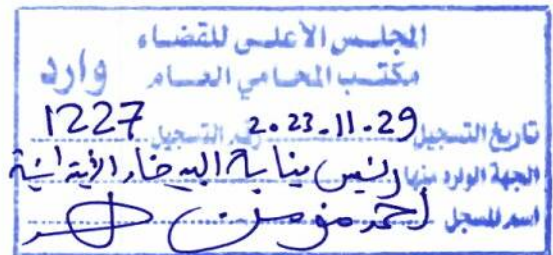 المجلس الأعلى للقضاء
مكتب المحامي العام وارد
تاريخ التسجيل 2023-11-29 رقم التسجيل 1227
الجهة الوارد منها رئيس نيابة
اسم المسجل أحمد